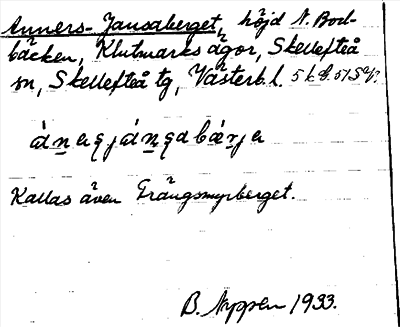 Anners-Jansaberget, höjd N. Bod-
bäcken, Klutmarks ägor, Skellefteå
sn, Skellefteå tg, Västerb. l. 5 k
Kallas även Trångsmyrberget.
B. Nyppen 1933.